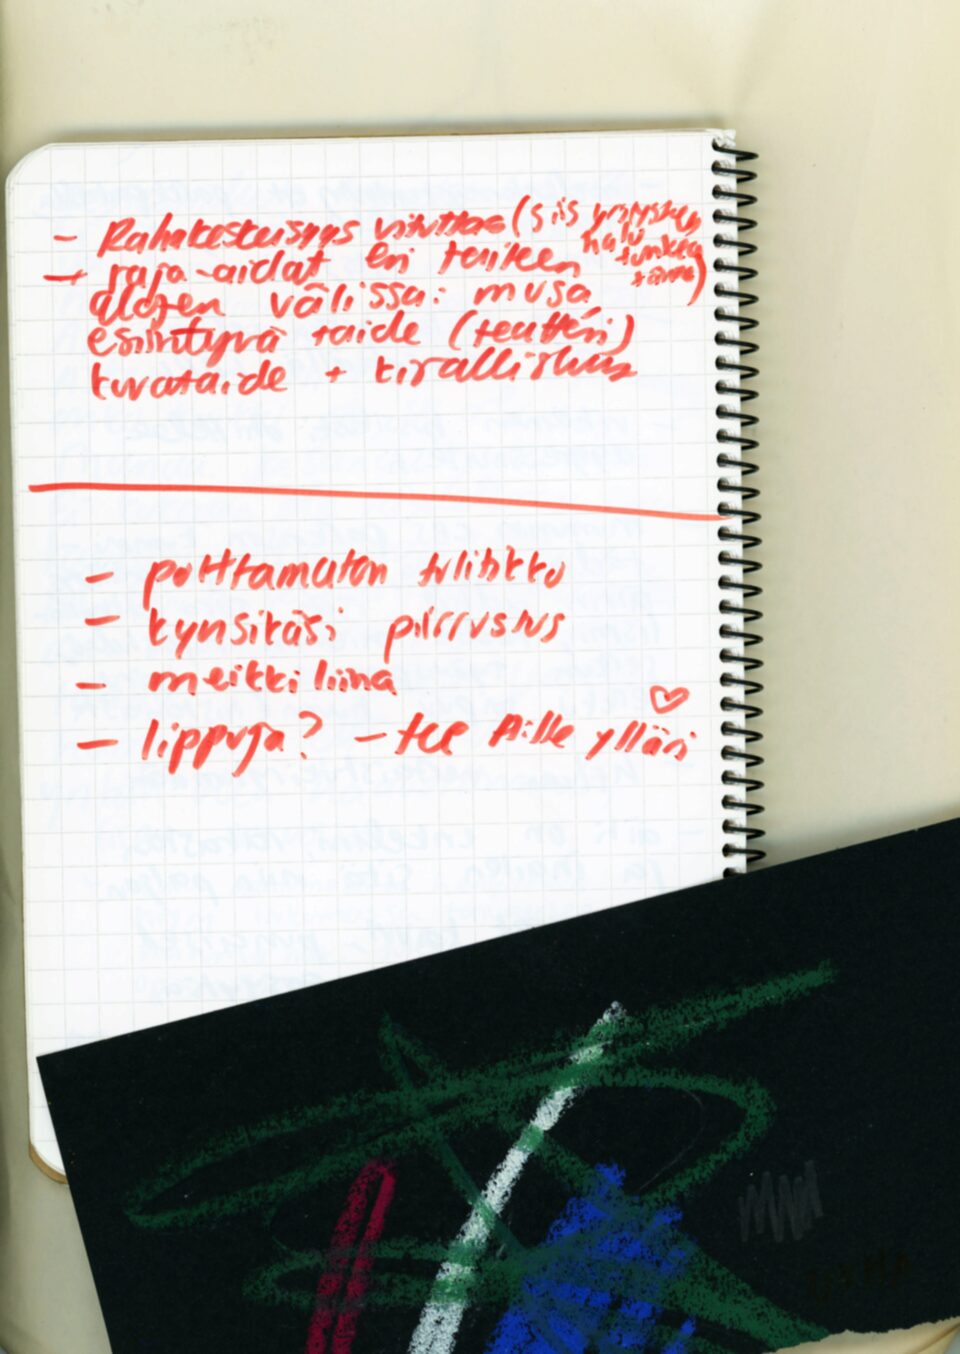 - Rahakeskeisyys vituttaa (siis yrityksen
halu
tunkea
tänne)
- raja-aidat eri taiteen
alojen välissä: musa
esiintyvä taide (teatteri)
kuvataide + kirjallisuus
- polttamaton tulitikku
- kynsikäsi piirrustus
- meikkiliina
- lippuja? - tee Aille ylläri ♡